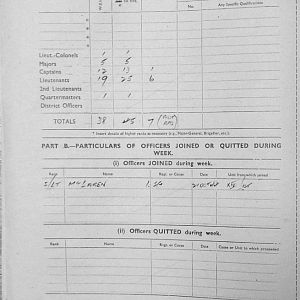 Any Special Qualifications
Lieut.-Colonels 1 1
Majors 5 5
Captains 12 13 1
Lieutenants 19 25 6
2nd Lieutenants
Quartermasters 1 1
District Officers
TOTALS 38 45 7
* Insert details of higher ranks as necessary (e.g., Major-General, Brigadier, etc.)
PART B.—PARTICULARS OF OFFICERS JOINED OR QUITTED DURING
WEEK.
(i) Officers JOINED during week.
Rank Name Regt. or Corps Date Unit from which joined
S/LT McLAREN
(ii) Officers QUITTED during week.
Rank Name Regt. or Corps Date Cause or Unit to which proceeded